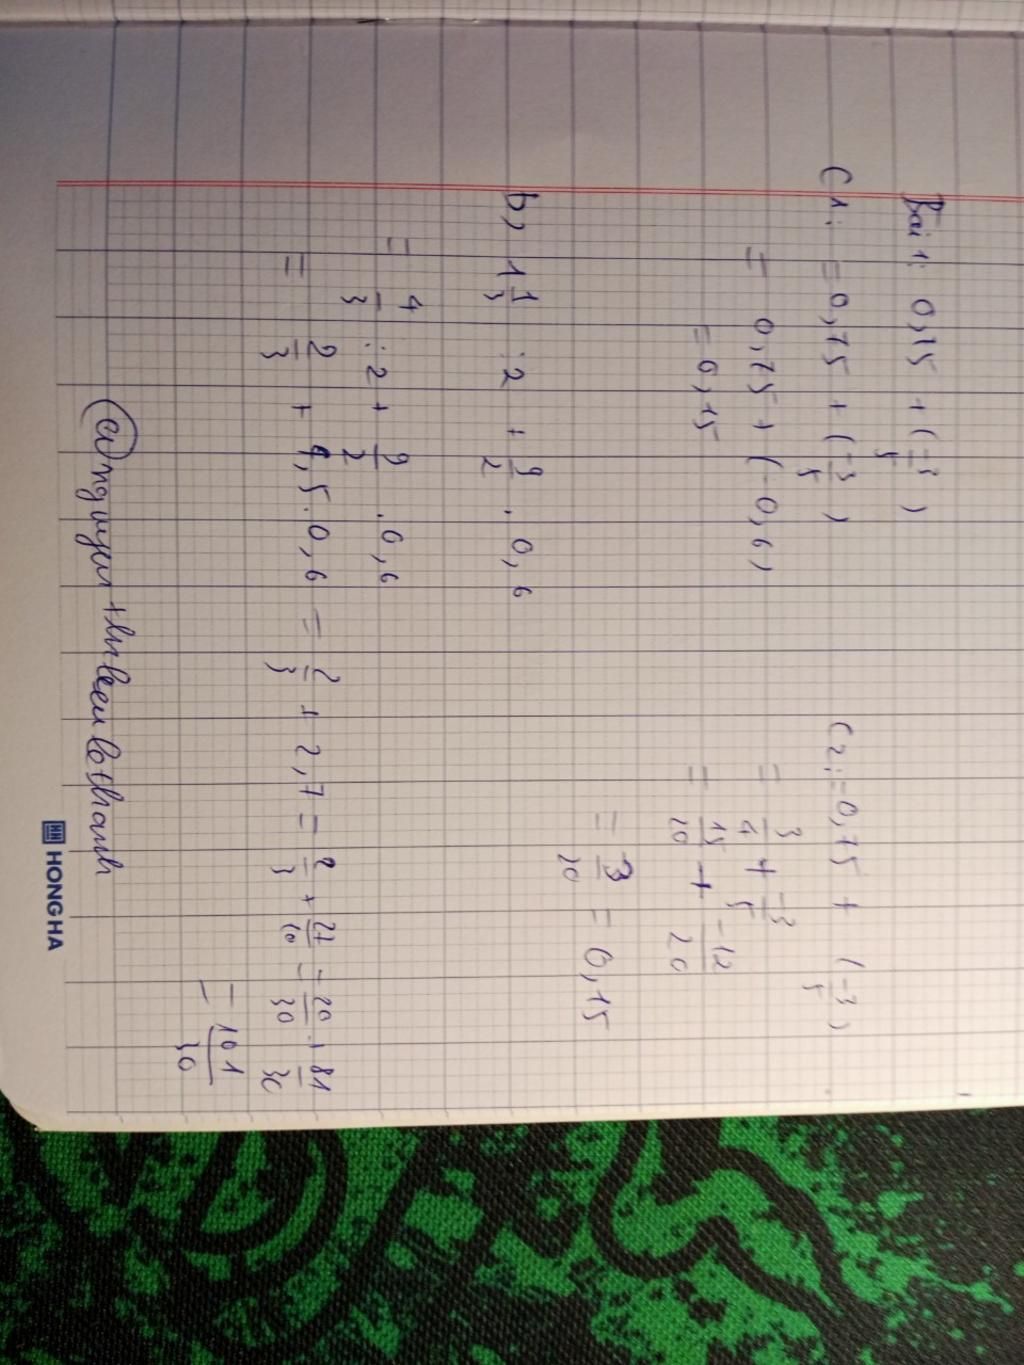 Bài 1: 0,15 + (-3/5)
C1: = 0,75 + (-3/5)
= 0,75 + (-0,6)
= 0,15
C2: = 0,75 + (-3/5)
= 3/4 + -3/5
= 15/20 + -12/20
= 3/20 = 0,15
b, 1 1/3 : 2 + 9/2 . 0,6
= 4/3 : 2 + 9/2 . 0,6
= 2/3 + 4,5 . 0,6 = 2/3 + 2,7 = 2/3 + 27/10 = 20/30 + 81/30
= 101/30
HONG HA